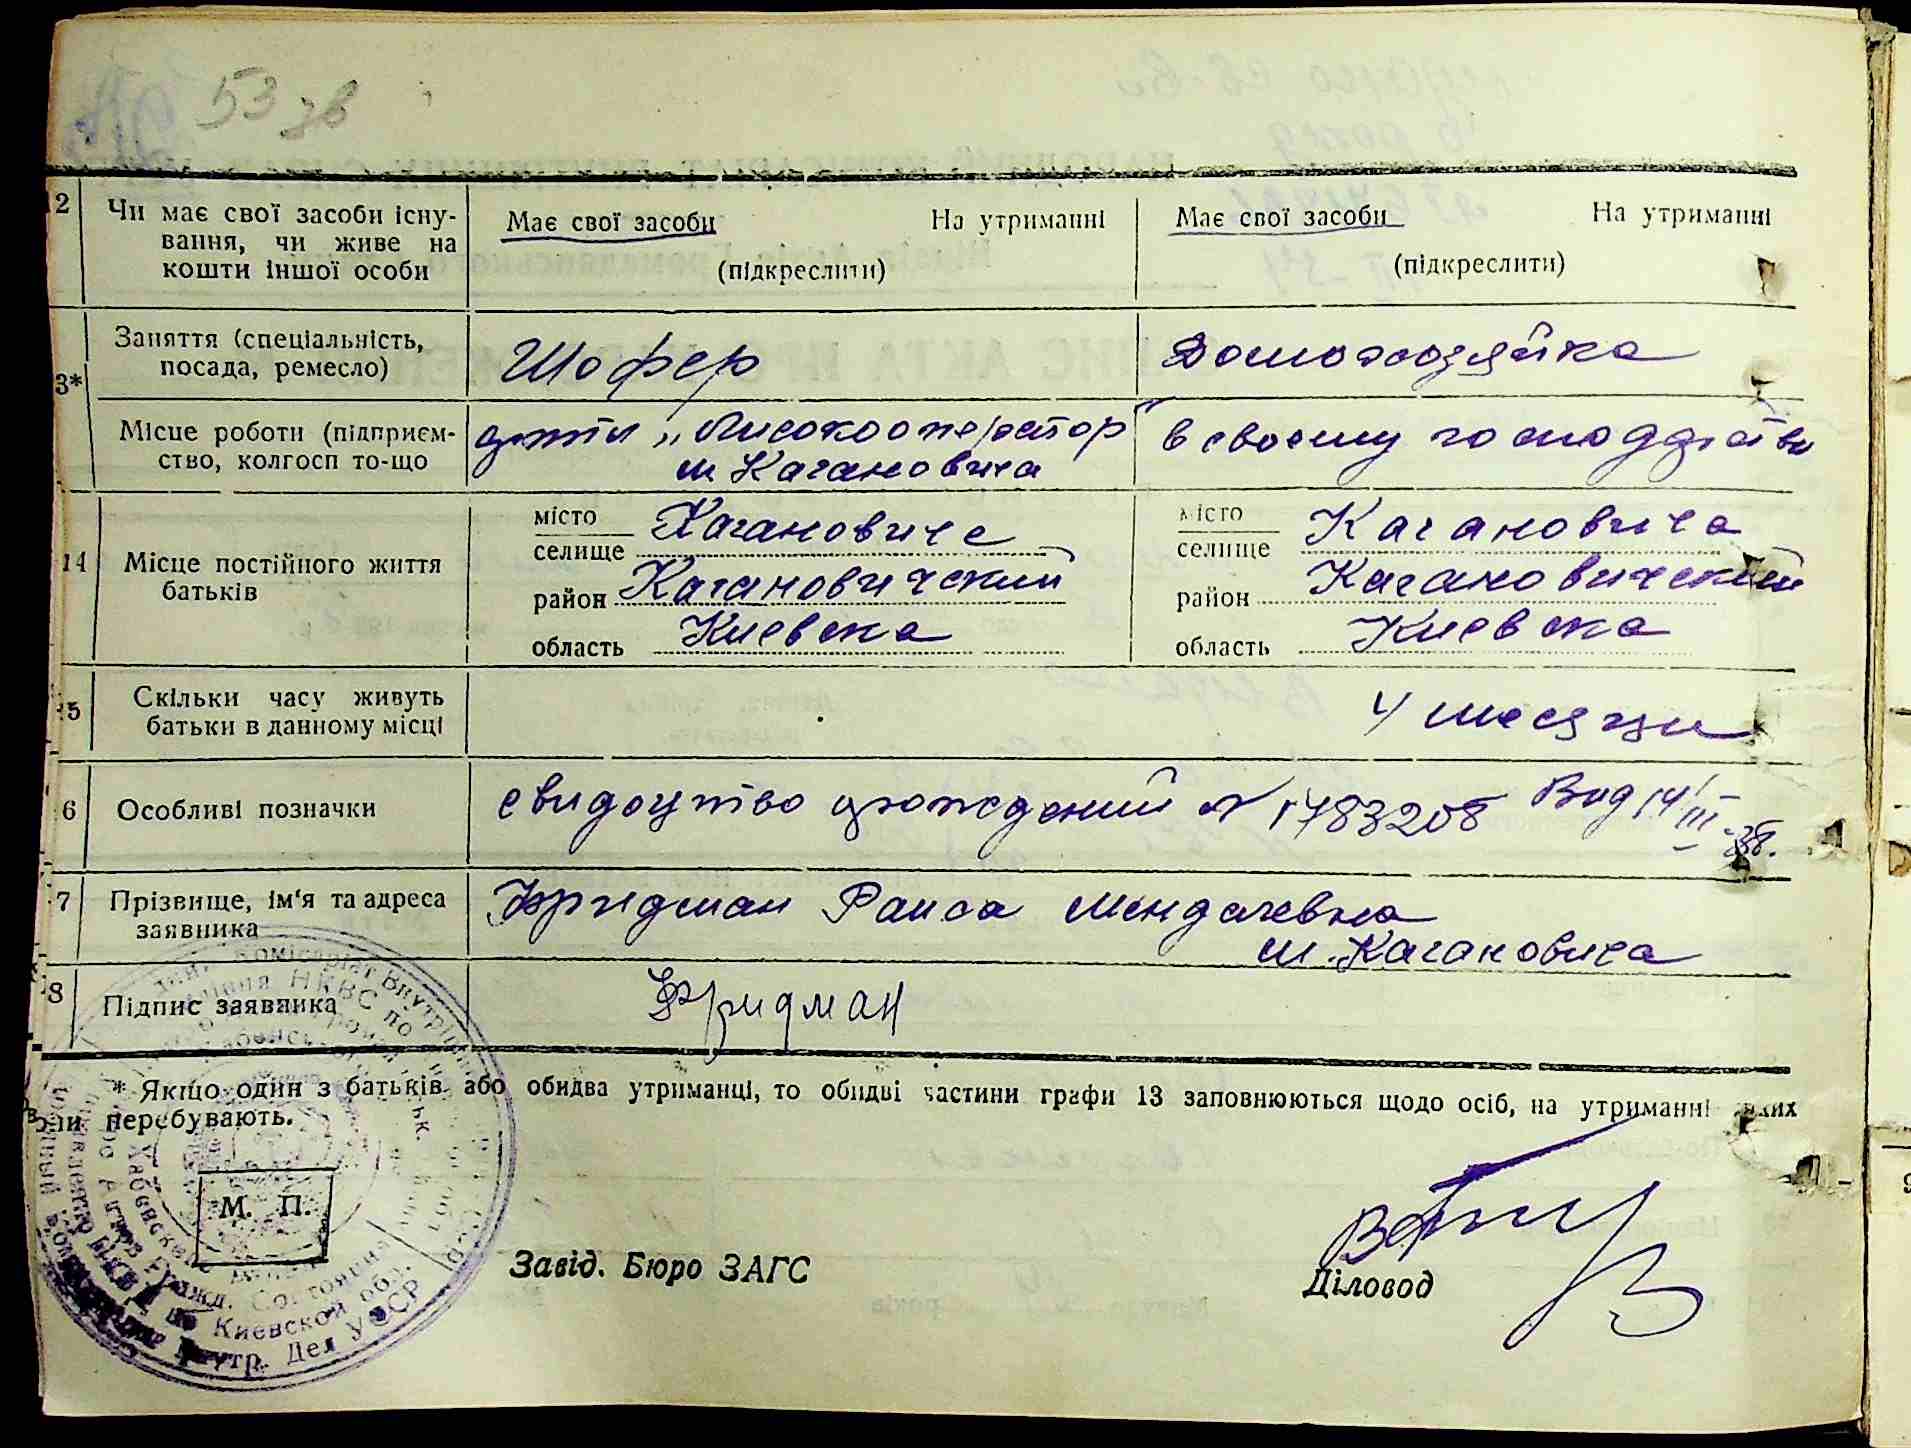 53 зв
12 Чи має свої засоби існу-
вання, чи живе на
кошти іншої особи
Має свої засоби На утриманні
(підкреслити)
Має свої засоби На утриманні
(підкреслити)
13* Заняття (спеціальність,
посада, ремесло)
Шофер
Домохозяйка
Місце роботи (підприєм-
ство, колгосп то-що
артіл „Лисокооператор"
м Кагановича
в своему господарстві
14 Місце постійного життя
батьків
місто
селище Кагановиче
район Кагановичский
область Киевска
місто
селище Кагановича
район Кагановичский
область Киевска
15 Скільки часу живуть
батьки в данному місці
4 месяци
16 Особливі позначки
свидоцтво урождений № 1783208 Вид 14/III-38.
17 Прізвище, ім'я та адреса
заявника
Фридман Раиса Менделевна
м. Кагановича
18 Підпис заявника
Фридман
* Якщо один з батьків або обидва утриманці, то обидві частини графи 13 заповнюються щодо осіб, на утриманні яких
вони перебувають.
М. П.
Завід. Бюро ЗАГС
Діловод